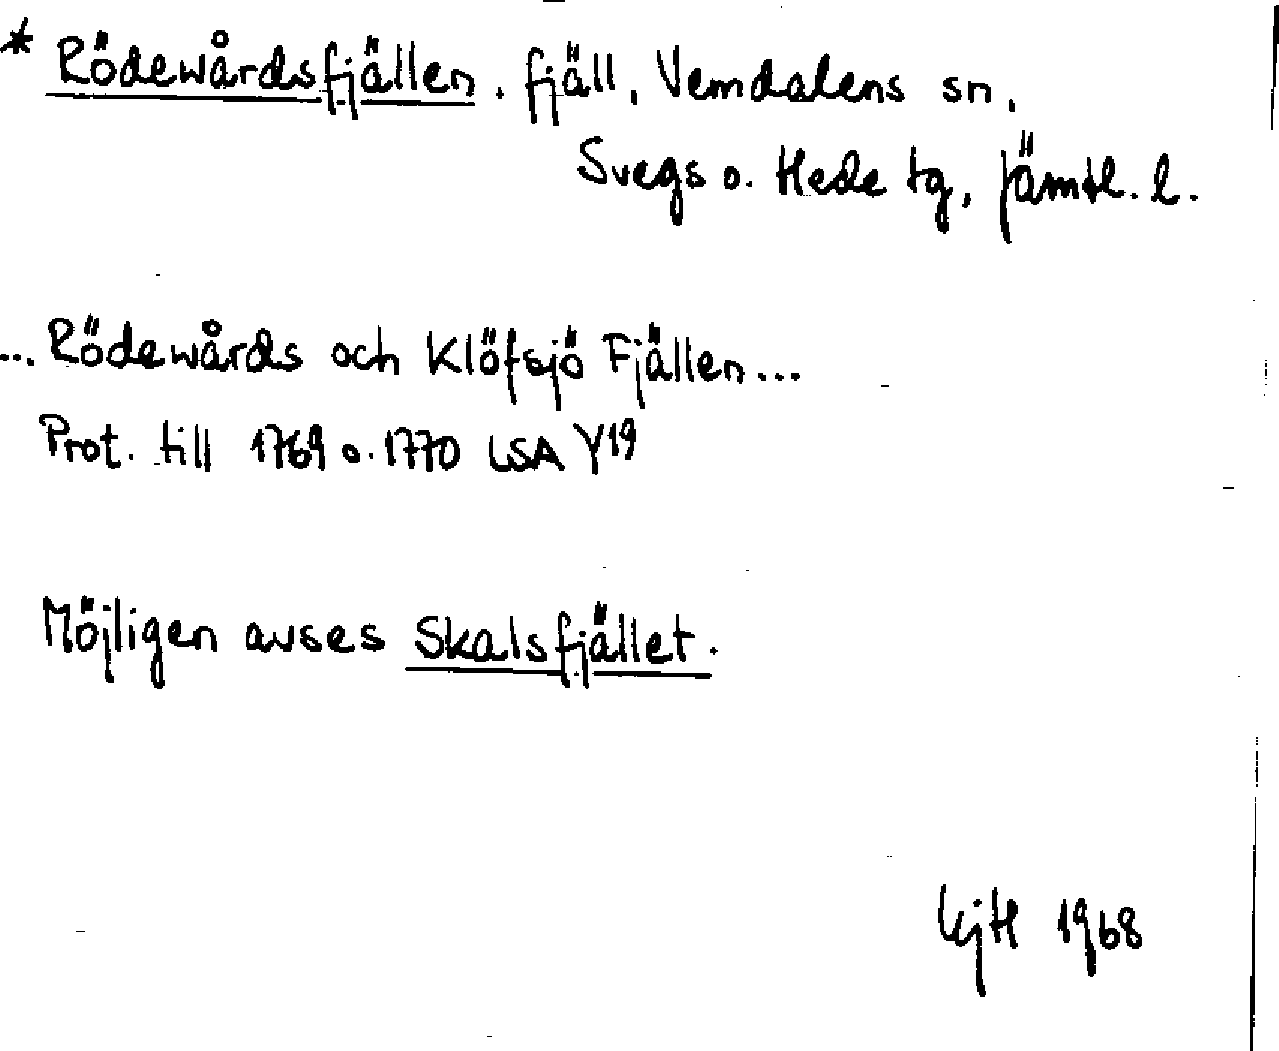 * Rödewårdsfjällen. fjäll, Vemdalens sn,
Svegs o. Hede tg, Jämtl. l.
... Rödewårds och Klöfsjö Fjällen...
Prot. till 1769 o. 1770 LSA Y19
Möjligen avses Skalsfjället.
1968